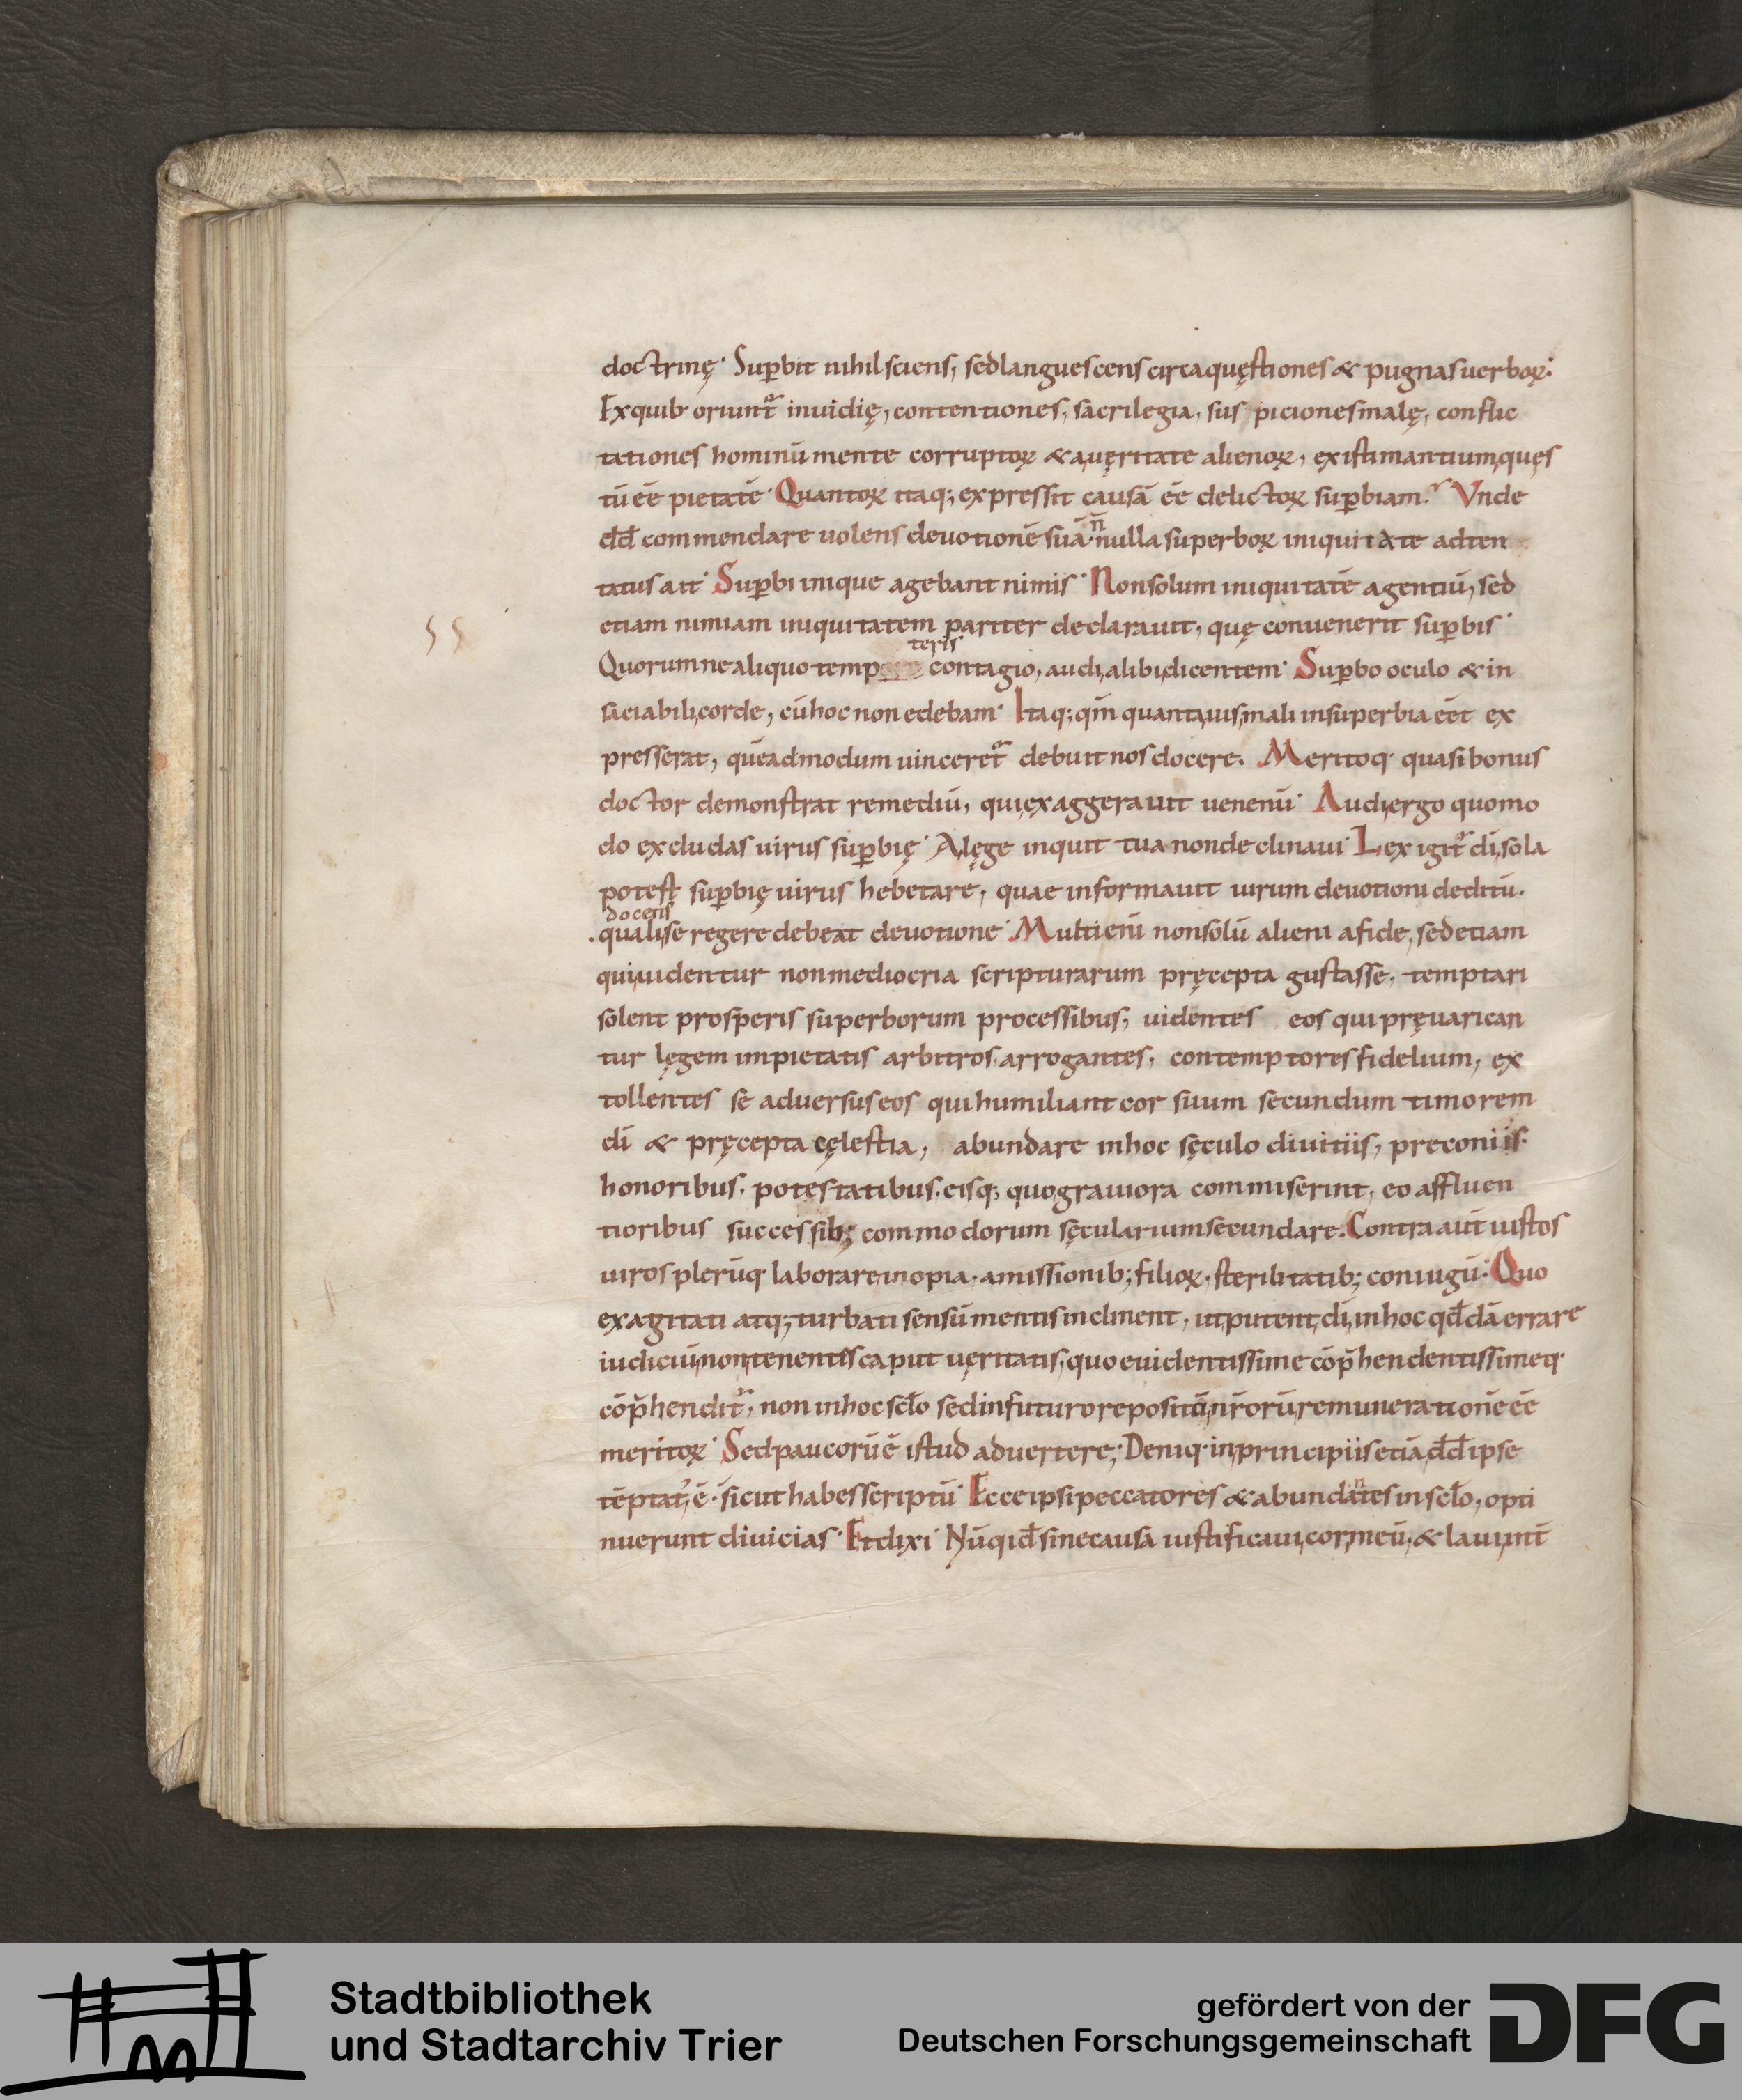 doctrinę· Sup̄bit nihil sciens, sed languescens circa quęstiones & pugnas uerboꝝ·
Ex quib· oriunt᷑ inuidię, contentiones, sacrilegia, suspicionesmalę, conflic
tationes hominū mente corruptoꝝ & auęritate alienoꝝ, existimantium quęs
tū eē pietatē· Quantoꝝ itaq; expressit causā eē delictoꝝ sup̄biam. Vnde
dd̄ commendare uolens deuotionē suā· n̄ nulla superboꝝ iniquitate adten
tatus ait· Sup̄bi inique agebant nimis· Non solum iniquitatē agentiū, sed
etiam nimiam iniquitatem pariter declarauit, quę conuenerit sup̄bis·
teris
Quorum ne aliquo temp contagio, audi alibi dicentem· Sup̄bo oculo & in
saciabili corde, cū hoc non edebam· Itaq; qm̄ quanta uis mali in superbia eēt ex
presserat, quēadmodum uinceret᷑ debuit nos docere. Meritoq· quasi bonus
doctor demonstrat remediū, qui exaggerauit uenenū· Audi ergo quomo
do excludas uirus sup̄bię· A lęge inquit tua non declinaui· Lex igit᷑ dī sola
potest sup̄bię uirus hebetare, quae informauit uirum deuotioni deditū.
docens
.quali se regere debeat deuotione· Multi enī non solū alieni a fide, sed etiam
qui uidentur non mediocria scripturarum pręcepta gustasse, temptari
solent prosperis superborum processibus, uidentes eos qui pręuarican
tur lęgem impietatis arbitros arrogantes, contemptores fidelium, ex
tollentes se aduersus eos qui humiliant cor suum secundum timorem
dī & pręcepta cęlestia, abundare in hoc sęculo diuitiis, preconiis·
honoribus· potestatibus· eisq; quo grauiora commiserint, eo affluen
tioribus successib; commodorum sęcularium secundare. Contra aut̄ iustos
uiros plerūq· laborare inopia· amissionib; filioꝝ· sterilitatib; coniugū· Quo
exagitati atq; turbati sensū mentis inclinent, ut putent dī in hoc qd̄dā errare
iudiciū non tenentes caput uęritatis, quo euidentissime cōp̄hendentissimeq·
cōp̄hendit᷑, non in hoc sc̄lo sed in futuro repositā nr̄orū remunerationē eē
meritoꝝ· Sed paucorū ē istud aduertere; Deniq· in principiis etiā dd̄ ipse
tēptat᷒ ē· sicut habes scriptū· Ecce ipsi peccatores & abundantes in sc̄lo, opti
nuerunt diuicias· Et dixi· Nūqid̄ sine causa iustificaui cor meū, & laui int̄
Stadtbibliothek
und Stadtarchiv Trier
gefördert von der
Deutschen Forschungsgemeinschaft
DFG